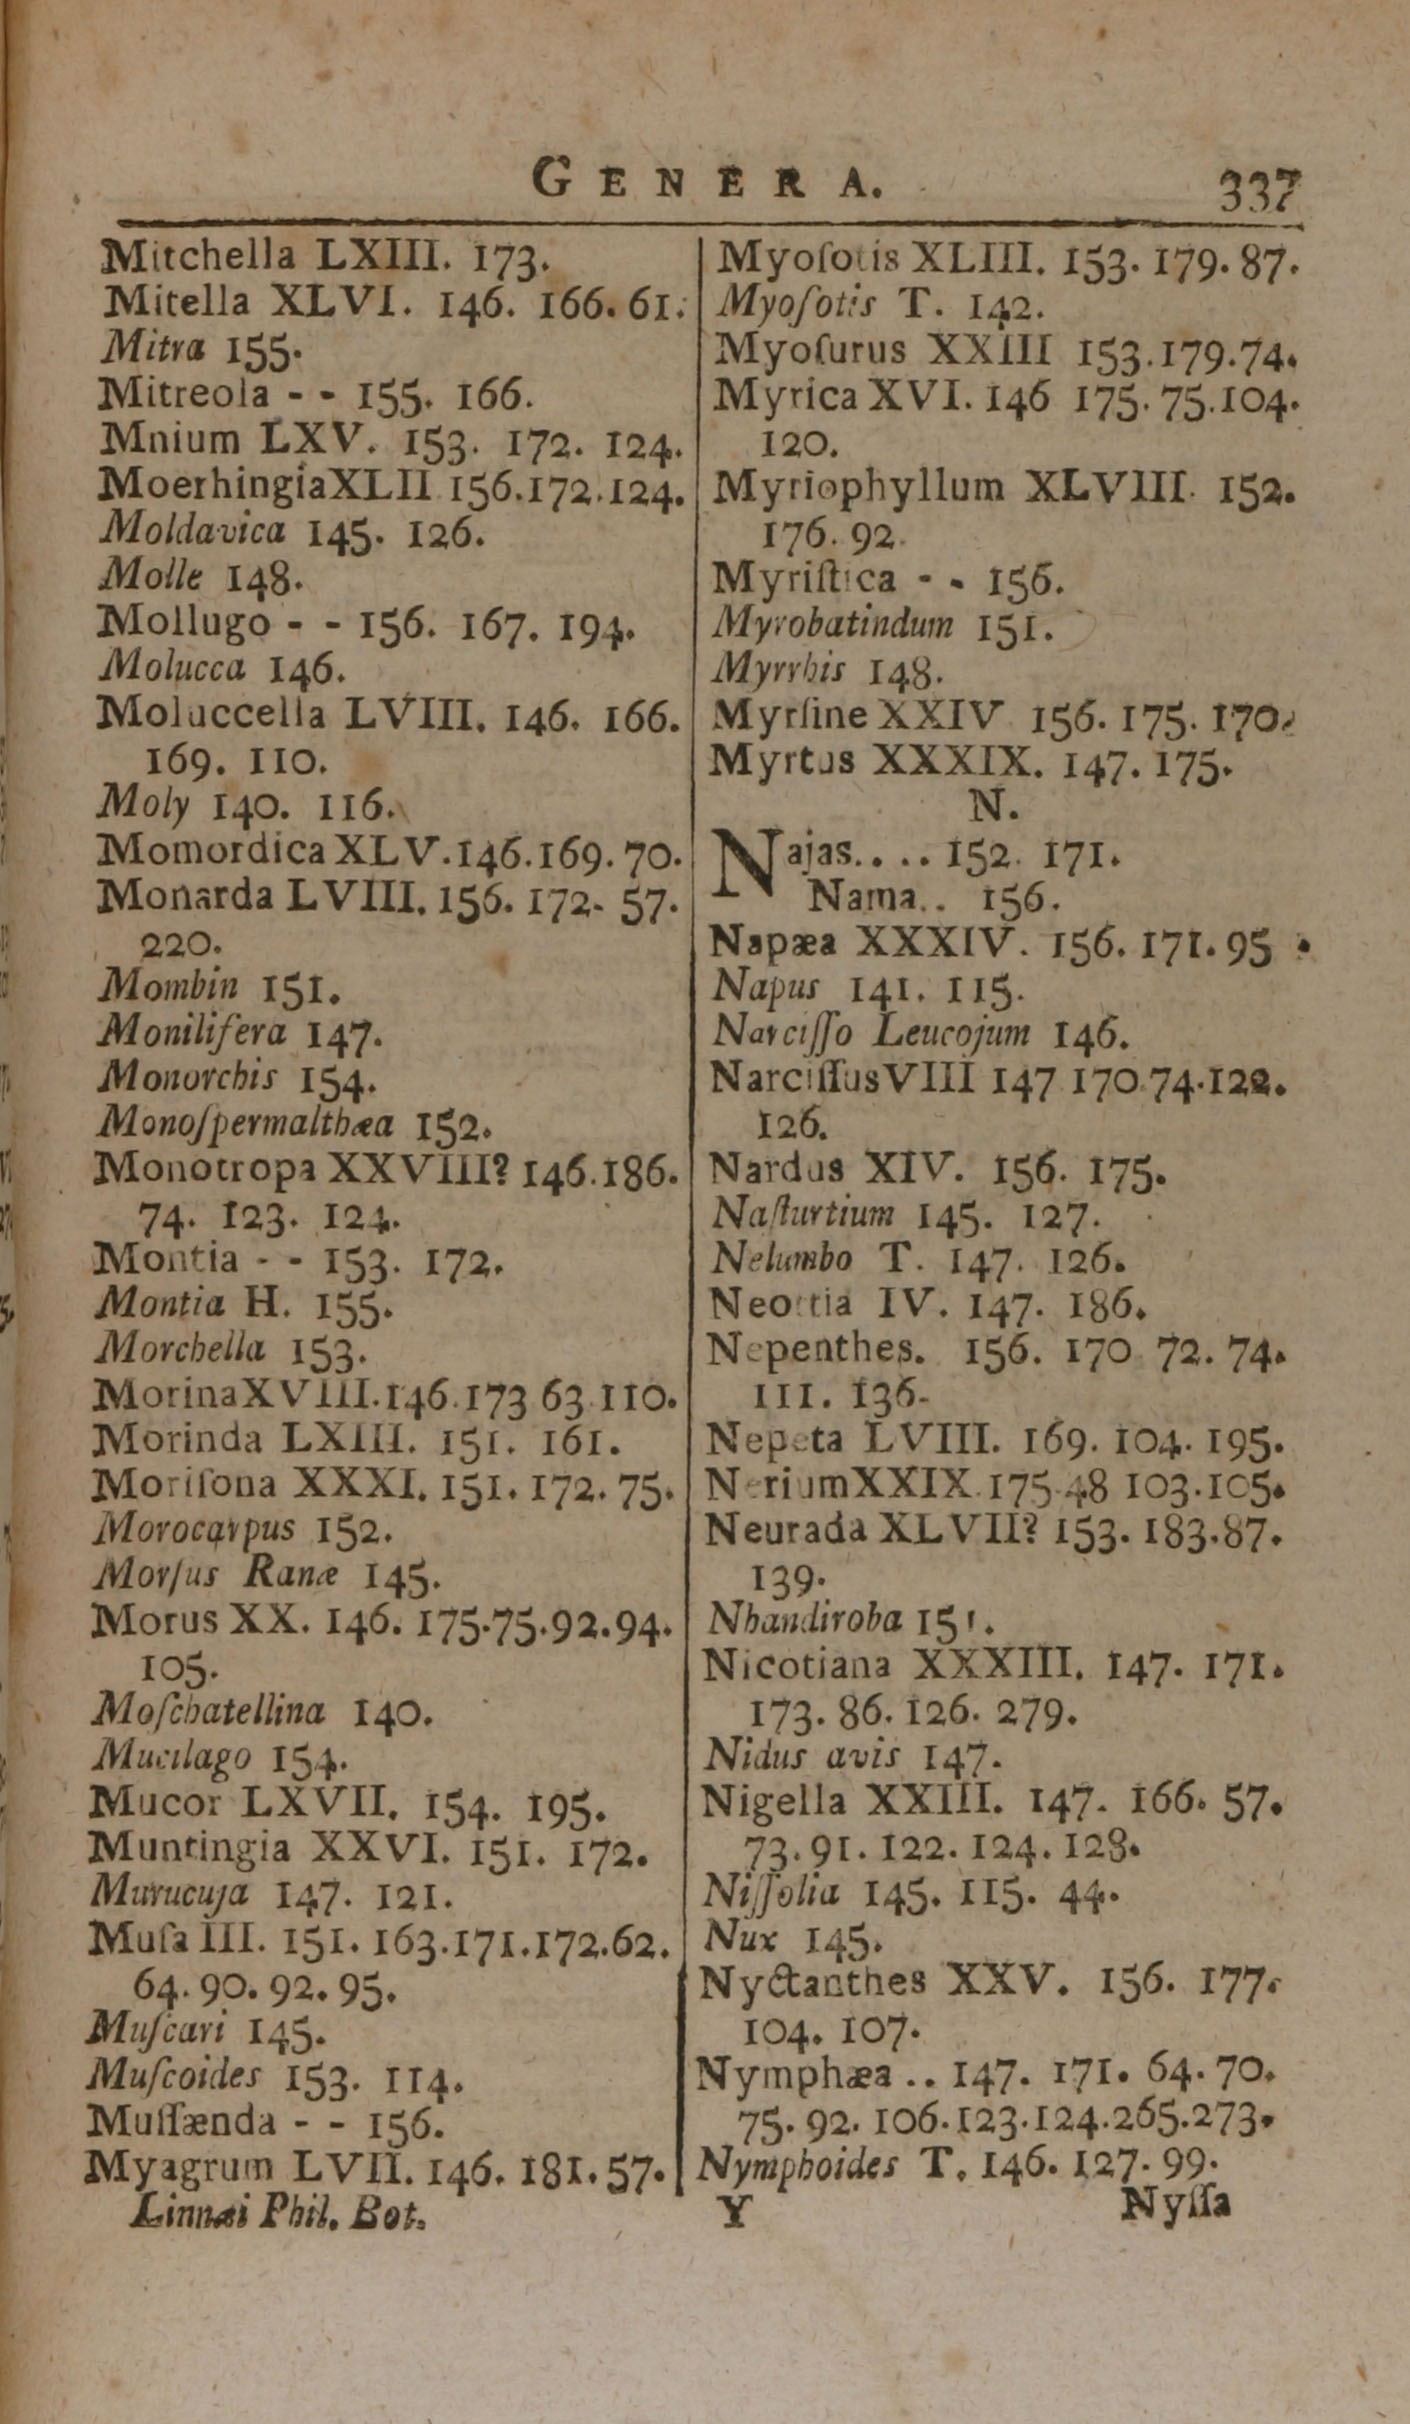 GENERA. 337
Mitchella LXIII. 173.
Mitella XLVI. 146. 166. 61.
Mitra 155.
Mitreola - - 155. 166.
Mnium LXV. 153. 172. 124.
MoerhingiaXLII 156.172.124.
Moldavica 145. 126.
Molle 148.
Mollugo - - 156. 167. 194.
Molucca 146.
Moluccella LVIII. 146. 166.
169. 110.
Moly 140. 116.
Momordica XLV.146.169. 70.
Monarda LVIII. 156. 172. 57.
220.
Mombin 151.
Monilifera 147.
Monorchis 154.
Monoſpermalthæa 152.
Monotropa XXVIII? 146.186.
74. 123. 124.
Montia - - 153. 172.
Montia H. 155.
Morchella 153.
MorinaXVIII.146.173 63 110.
Morinda LXIII. 151. 161.
Moriſona XXXI. 151. 172. 75.
Morocarpus 152.
Morſus Ranæ 145.
Morus XX. 146. 175.75.92.94.
105.
Moſchatellina 140.
Mucilago 154.
Mucor LXVII. 154. 195.
Muntingia XXVI. 151. 172.
Murucuja 147. 121.
Muſa III. 151. 163.171.172.62.
64. 90. 92. 95.
Muſcari 145.
Muſcoides 153. 114.
Muſſænda - - 156.
Myagrum LVII. 146. 181. 57.
Myoſotis XLIII. 153. 179. 87.
Myoſotis T. 142.
Myoſurus XXIII 153.179.74.
Myrica XVI. 146 175. 75.104.
120.
Myriophyllum XLVIII. 152.
176. 92.
Myriſtica - - 156.
Myrobatindum 151.
Myrrhis 148.
Myrſine XXIV 156. 175. 170.
Myrtus XXXIX. 147. 175.
N.
Najas.. .. 152. 171.
Nama.. 156.
Napæa XXXIV. 156. 171. 95 .
Napus 141. 115.
Narciſſo Leucojum 146.
NarciſſusVIII 147 170 74.122.
126.
Nardus XIV. 156. 175.
Naſturtium 145. 127.
Nelumbo T. 147. 126.
Neottia IV. 147. 186.
Nepenthes. 156. 170 72. 74.
111. 136.
Nepeta LVIII. 169. 104. 195.
NeriumXXIX.175.48 103.105.
Neurada XLVII? 153. 183.87.
139.
Nhandiroba 151.
Nicotiana XXXIII. 147. 171.
173. 86. 126. 279.
Nidus avis 147.
Nigella XXIII. 147. 166. 57.
73. 91. 122. 124. 128.
Niſſolia 145. 115. 44.
Nux 145.
Nyctanthes XXV. 156. 177.
104. 107.
Nymphæa .. 147. 171. 64. 70.
75. 92. 106.123.124.265.273.
Nymphoides T. 146. 127. 99.
Linnæi Phil. Bot. Y Nyſſa